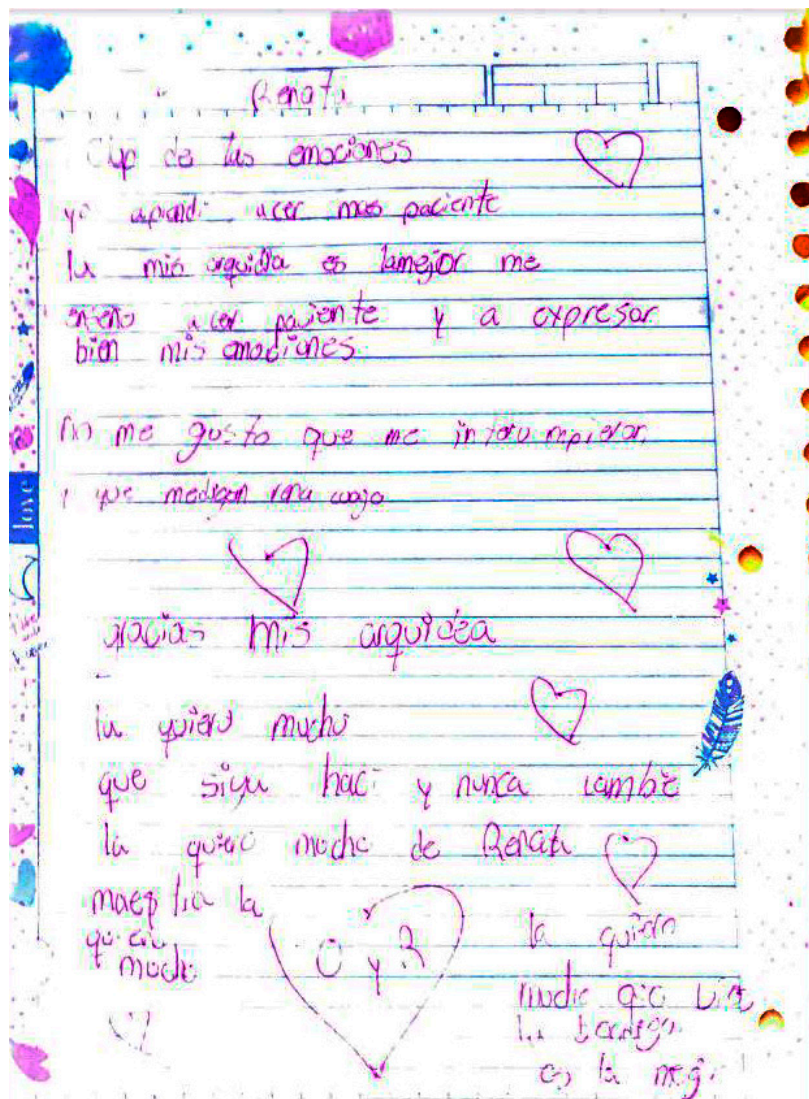 Renata
Clup de las emociones
yo aprendi acer mas paciente
la mis orquidia es lamejor me
enseno acer paciente y a expresar
bien mis emociones
no me gusto que me interumpieran
y que medigan
gracias mis orquidea
la quiero mucho
que siga haci y nunca cambie
la quiero mucho de Renata
maestra la
quiero
mucho
O y R
la quiero
mucho que Dios
la bendiga
es la mejor
love